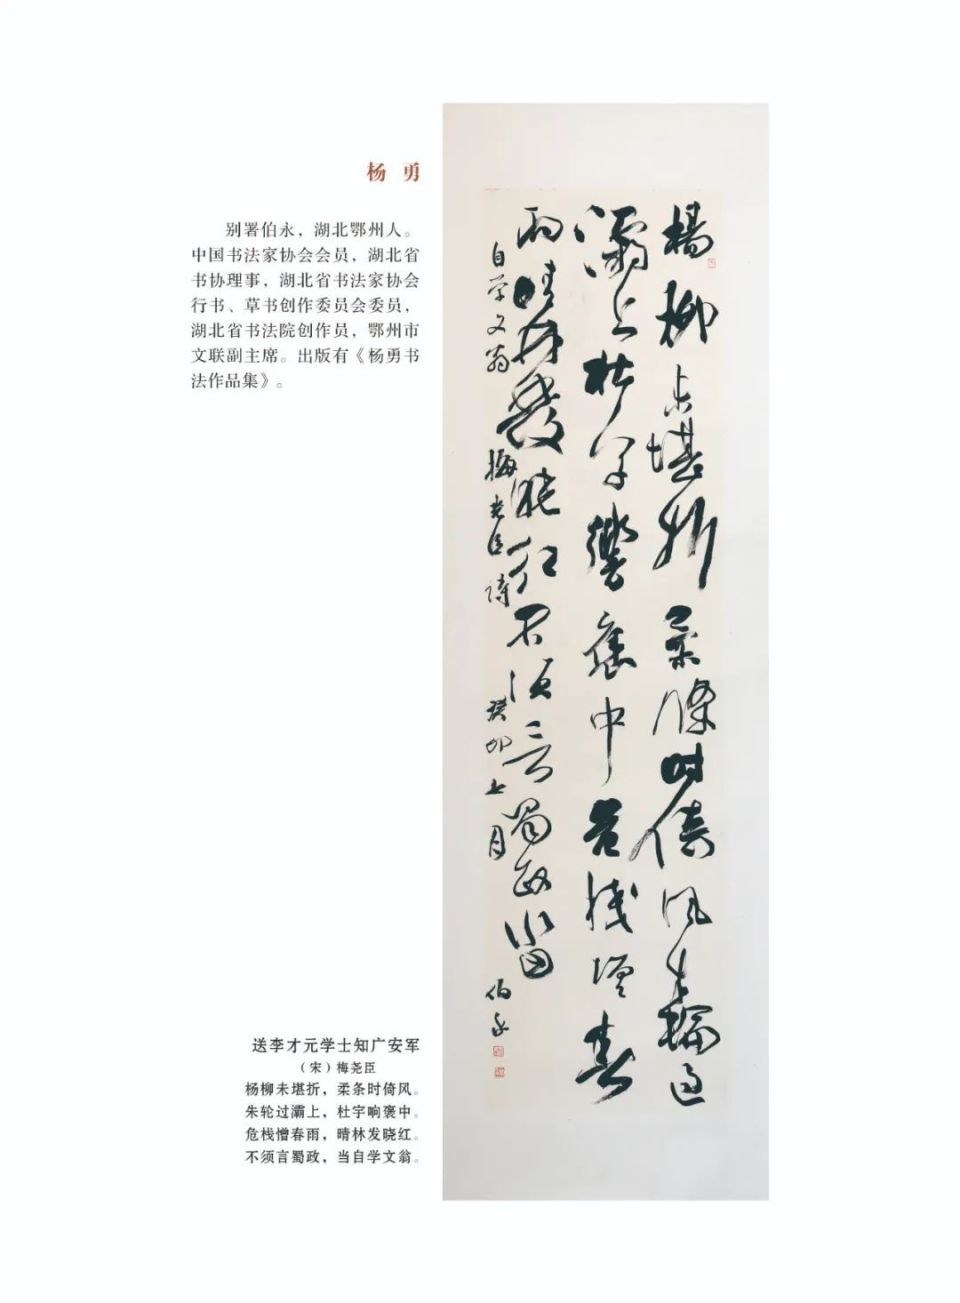 杨 勇
别署伯永，湖北鄂州人。
中国书法家协会会员，湖北省
书协理事，湖北省书法家协会
行书、草书创作委员会委员，
湖北省书法院创作员，鄂州市
文联副主席。出版有《杨勇书
法作品集》。
楊柳未堪折柔條時倚風朱輪過
灞上杜宇響褒中危棧憎春
雨晴林發曉紅不須言蜀政當
自学文翁 梅尧臣詩 癸卯七月 伯永
送李才元学士知广安军
（宋）梅尧臣
杨柳未堪折，柔条时倚风。
朱轮过灞上，杜宇响褒中。
危栈憎春雨，晴林发晓红。
不须言蜀政，当自学文翁。